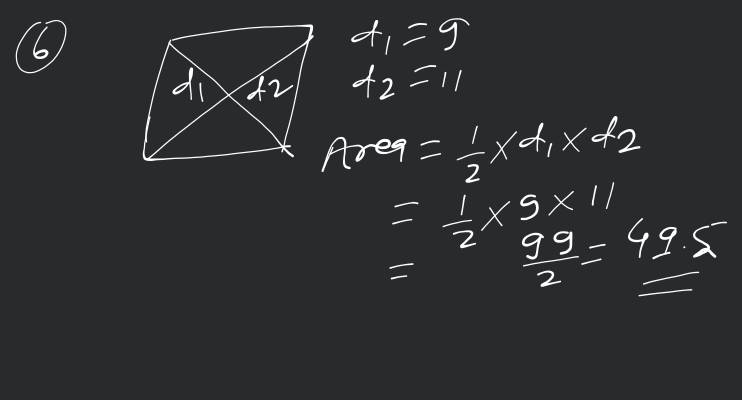 6
d1 d2
d1 = 9
d2 = 11
Area = 1/2 × d1 × d2
= 1/2 × 9 × 11
= 99/2 = 49.5